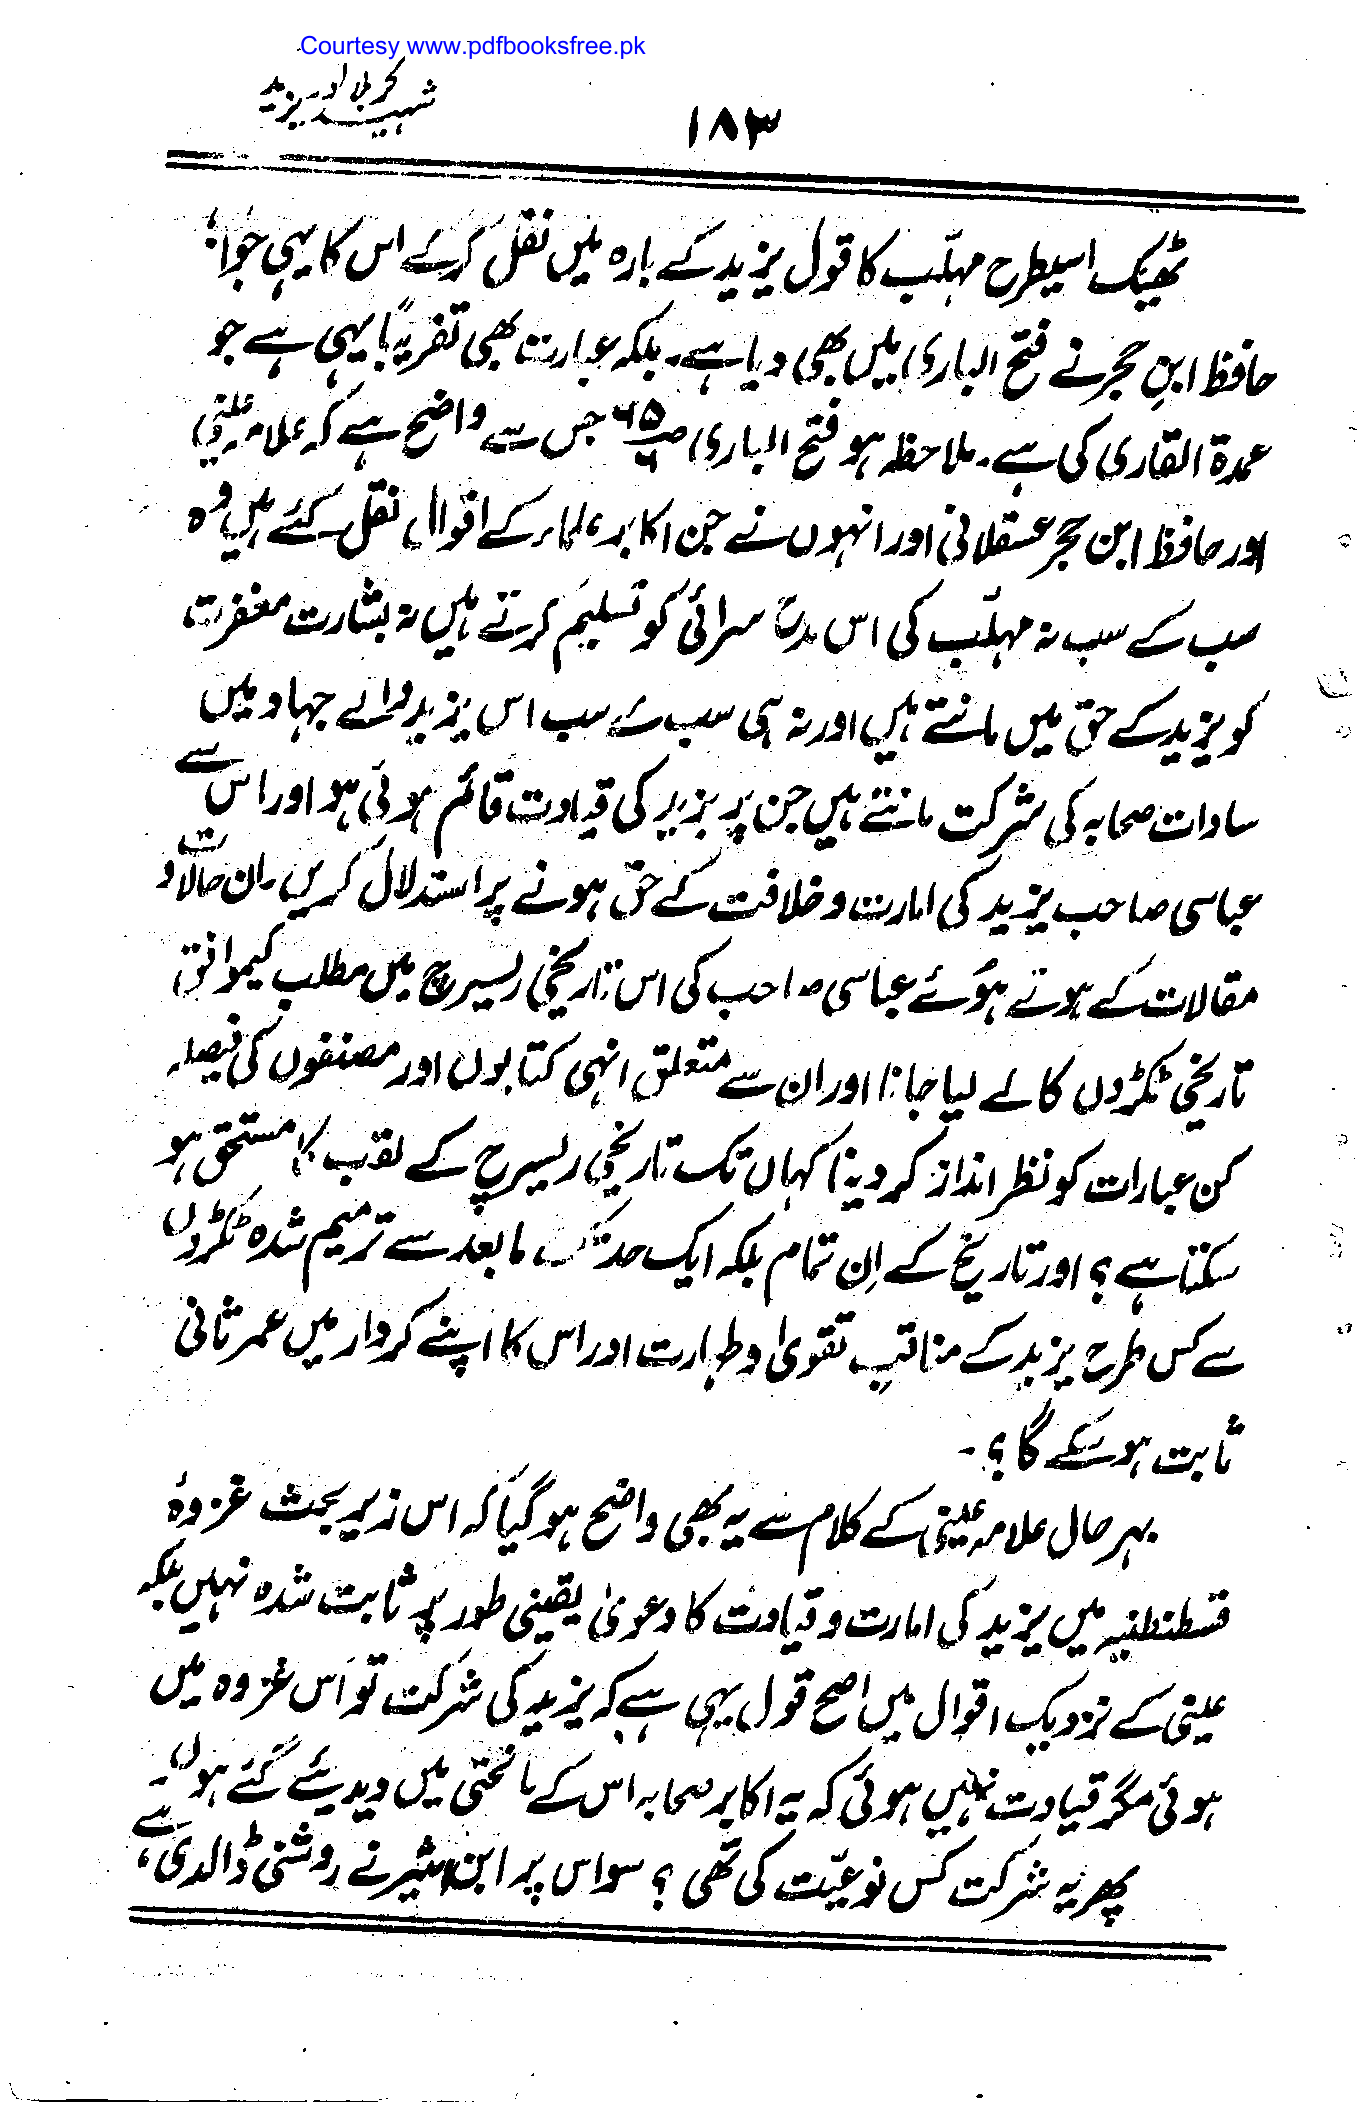 Courtesy www.pdfbooksfree.pk
شہید کربلا اور یزید
۱۸۳
ٹھیک اسیطرح مہلّب کا قول یزید کے بارہ میں نقل کرکے اس کا یہی جواب
حافظ ابنِ حجر نے فتح الباری میں بھی دیا ہے۔ بلکہ عبارت بھی تقریباً یہی ہے جو
عمدۃ القاری کی ہے۔ ملاحظہ ہو فتح الباری جس سے واضح ہے کہ علامہ عینی
اور حافظ ابن حجر عسقلانی اور انہوں نے جن اکابر علماء کے اقوال نقل کئے ہیں وہ
سب کے سب نہ مہلّب کی اس مدح سرائی کو تسلیم کرتے ہیں نہ بشارت مغفرت
کو یزید کے حق میں مانتے ہیں اور نہ ہی سب کے سب اس یزید والے جہاد میں
سادات صحابہ کی شرکت مانتے ہیں جن پر یزید کی قیادت قائم ہوئی ہو اور اس سے
عباسی صاحب یزید کی امارت و خلافت کے حق ہونے پر استدلال کریں۔ ان حالات و
مقالات کے ہوتے ہوئے عباسی صاحب کی اس تاریخی ریسرچ میں مطلب کیموافق
تاریخی ٹکڑوں کا لے لیا جانا اور ان سے متعلق انہی کتابوں اور مصنفوں کی فیصلہ
کن عبارات کو نظر انداز کر دینا کہاں تک تاریخی ریسرچ کے لقب کا مستحق ہو
سکتا ہے؟ اور تاریخ کے اِن تمام بلکہ ایک حد تک مابعد سے ترمیم شدہ ٹکڑوں
سے کس طرح یزید کے مناقبِ تقویٰ و طہارت اور اس کا اپنے کردار میں عمر ثانی
ثابت ہو سکے گا؟۔
بہر حال علامہ عینی کے کلام سے یہ بھی واضح ہو گیا کہ اس زیر بحث غزوۂ
قسطنطنیہ میں یزید کی امارت و قیادت کا دعویٰ یقینی طور پر ثابت شدہ نہیں بلکہ
عینی کے نزدیک اقوال میں اصح قول یہی ہے کہ یزید کی شرکت تو اس غزوہ میں
ہوئی مگر قیادت نہیں ہوئی کہ یہ اکابر صحابہ اس کے ماتحتی میں دیدیئے گئے ہوں۔
پھر یہ شرکت کس نوعیّت کی تھی؟ سو اس پر ابن اثیر نے روشنی ڈالدی ہے،